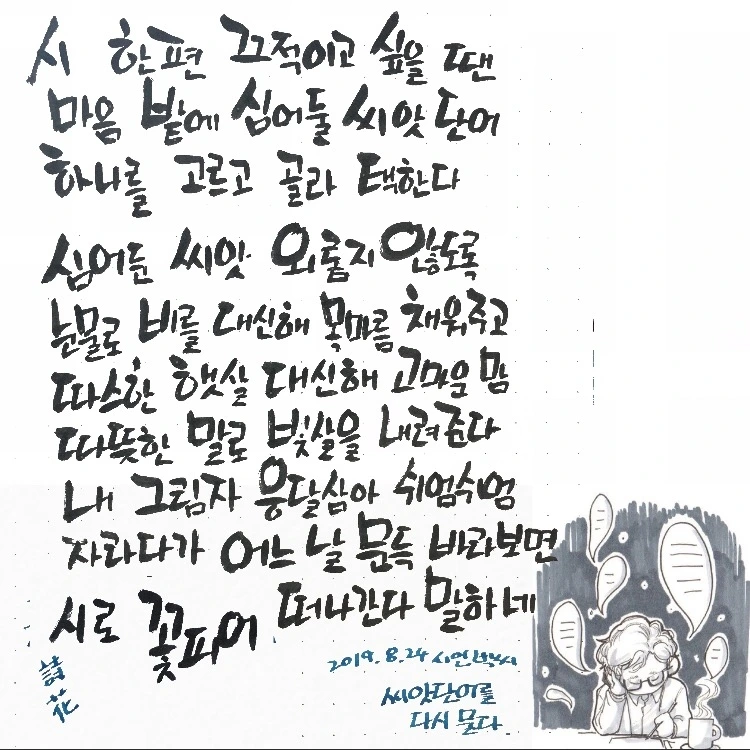 시 한편 끄적이고 싶을 땐
마음 밭에 심어둘 씨앗 단어
하나를 고르고 골라 택한다
심어둔 씨앗 외롭지 않도록
눈물로 비를 대신해 목마름 채워주고
따스한 햇살 대신해 고마운 맘
따뜻한 말로 빛살을 내려준다
내 그림자 응달삼아 쉬엄쉬엄
자라다가 어느 날 문득 바라보면
시로 꽃피어 떠나간다 말하네
詩花
2019. 8. 24 시언
씨앗단어를
다시 묻다.